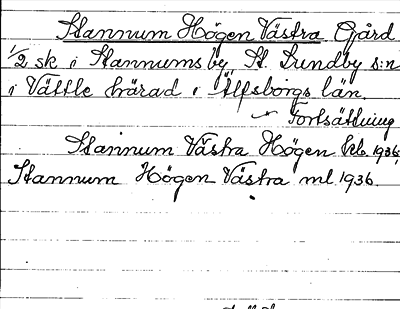 Stannum Högen Västra Gård
1/2 sk i Stannums by St. Lundby s:n
i Vättle härad i Älfsborgs län.
Fortsättning
Stannum Västra Högen Jeb. 1936
Stannum Högen Västra ml. 1936.